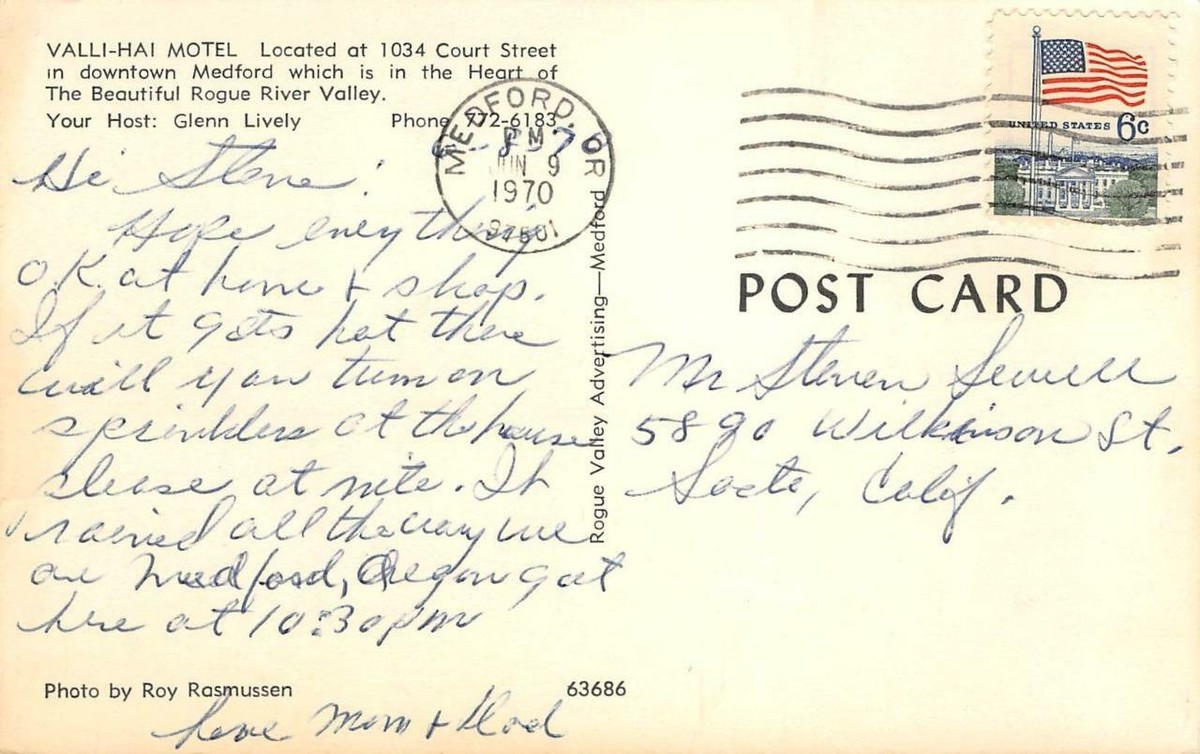 VALLI-HAI MOTEL Located at 1034 Court Street
in downtown Medford which is in the Heart of
The Beautiful Rogue River Valley.
Your Host: Glenn Lively Phone 772-6183
6-8-70
Hi Steve!
Hope everything
O.K. at home & shop.
If it gets hot there
will you turn on
sprinklers at the house
please at nite. It
rained all the way we
are Medford, Oregon got
here at 10:30 pm
Love Mom & Dad
Photo by Roy Rasmussen
63686
Rogue Valley Advertising—Medford
MEDFORD, OR
PM
JUN 9
1970
97501
UNITED STATES 6c
POST CARD
Mr Steven Sewell
5890 Wilkinson St.
Sacto, Calif.